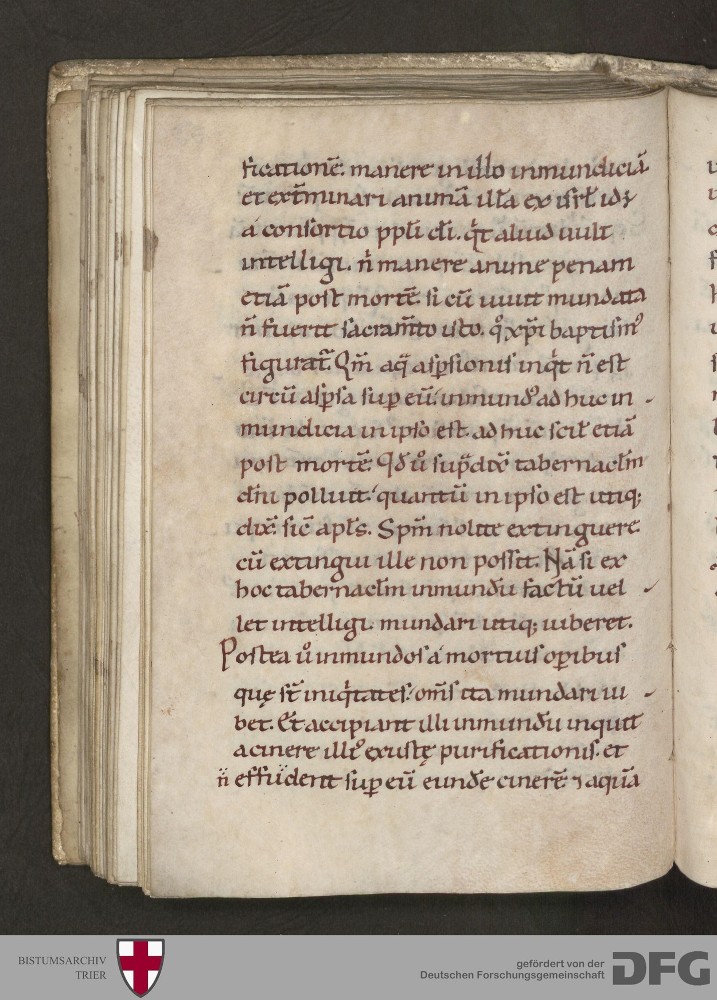 ficationē. manere in illo inmundiciā
et ext̄minari animā illā ex isrł. id ÷
a consortio ppłi dī. q̇t aliud uult
intelligi. n̄ manere anime penam
etiā post mortē. si cū uiuit mundata
n̄ fuerit sacram̄to isto. q° xp̄i baptism'
figurat̄. Qm̄ aq̄ asp̄sionis inq̇t n̄ est
circū asp̄sa sup eū. inmund' ad huc in
mundicia in ipso est. ad huc scil' etiā
post mortē. Qđ ů sup̄dix̄ tabernaclm̄
dn̄i polluit. quantū in ipso est utiq;
dix̄. sic̄ apłs. Spm̄ nolite extinguere.
cū extingui ille non possit. Nā si ex
hoc tabernaclm̄ inmundū factū uel
let intelligi. mundari utiq; iuberet.
Postea ů inmundos a mortuis oꝑibus
quę st̄ iniq̇tates. om̄s ita mundari iu
bet. Et accipiant illi inmundū inquit
a cinere illi' exustę purificationis. et
n̄ effudent suꝑ eū eundē cinerē ⁊ aquā
BISTUMSARCHIV
TRIER
gefördert von der
Deutschen Forschungsgemeinschaft
DFG